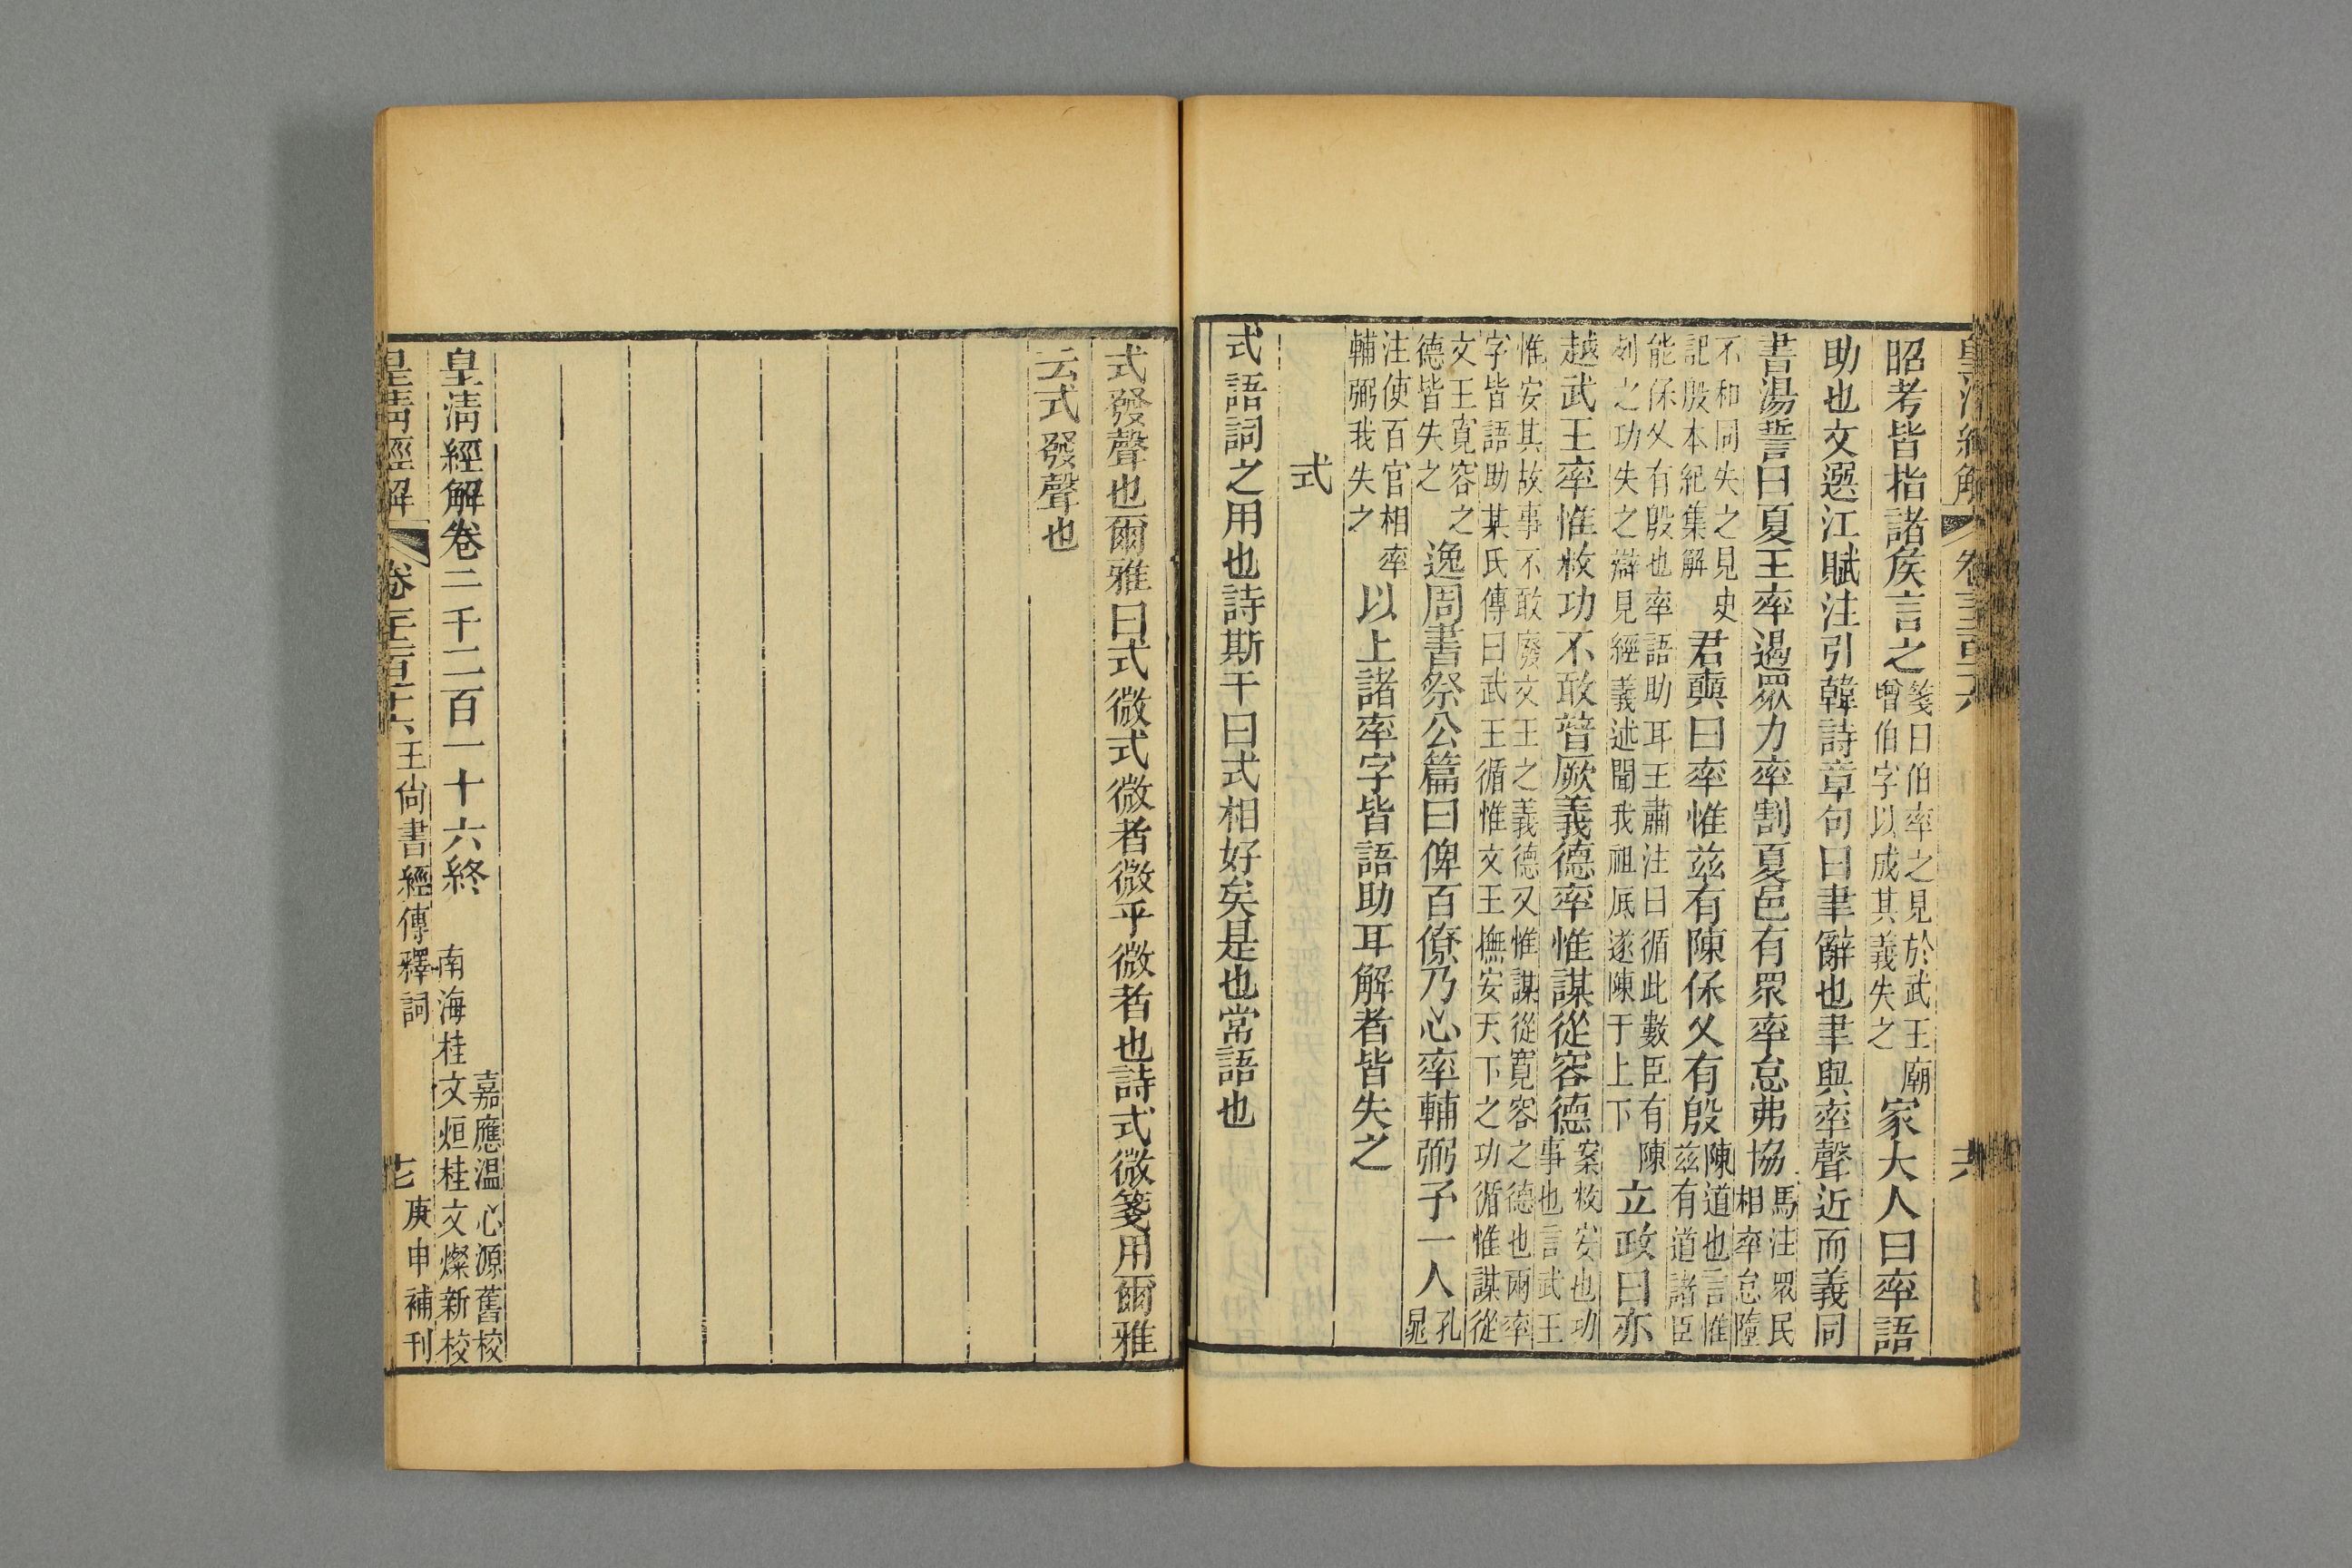 皇清經解 卷千二百十六
昭考皆指諸矦言之箋曰伯率之見於武王廟曾伯字以成其義失之家大人曰率語
助也文選江賦注引韓詩章句曰聿辭也聿與率聲近而義同
書湯誓曰夏王率遏眾力率割夏邑有眾率怠弗協馬注眾民相率怠墮
不和同失之見史記殷本紀集解君奭曰率惟茲有陳保乂有殷陳道也言惟茲有道諸臣
能保乂有殷也率語助耳王肅注曰循此數臣有陳列之功失之辯見經義述聞我祖厎遂陳于上下立政曰亦
越武王率惟敉功不敢替厥義德率惟謀從容德案敉安也功事也言武王
惟安其故事不敢廢文王之義德又惟謀從寛容之德也兩率字皆語助某氏傳曰武王循惟文王撫安天下之功循惟謀從
文王寛容之德皆失之逸周書祭公篇曰俾百僚乃心率輔弼予一人孔晁
注使百官相率輔弼我失之以上諸率字皆語助耳解者皆失之
式
式語詞之用也詩斯干曰式相好矣是也常語也
式發聲也爾雅曰式微式微者微乎微者也詩式微箋用爾雅
云式發聲也
皇清經解卷一千二百一十六終
嘉應溫心源舊校
南海桂文烜桂文燦新校
皇清經解 卷千二百十六 王尚書經傳釋詞 庚申補刊